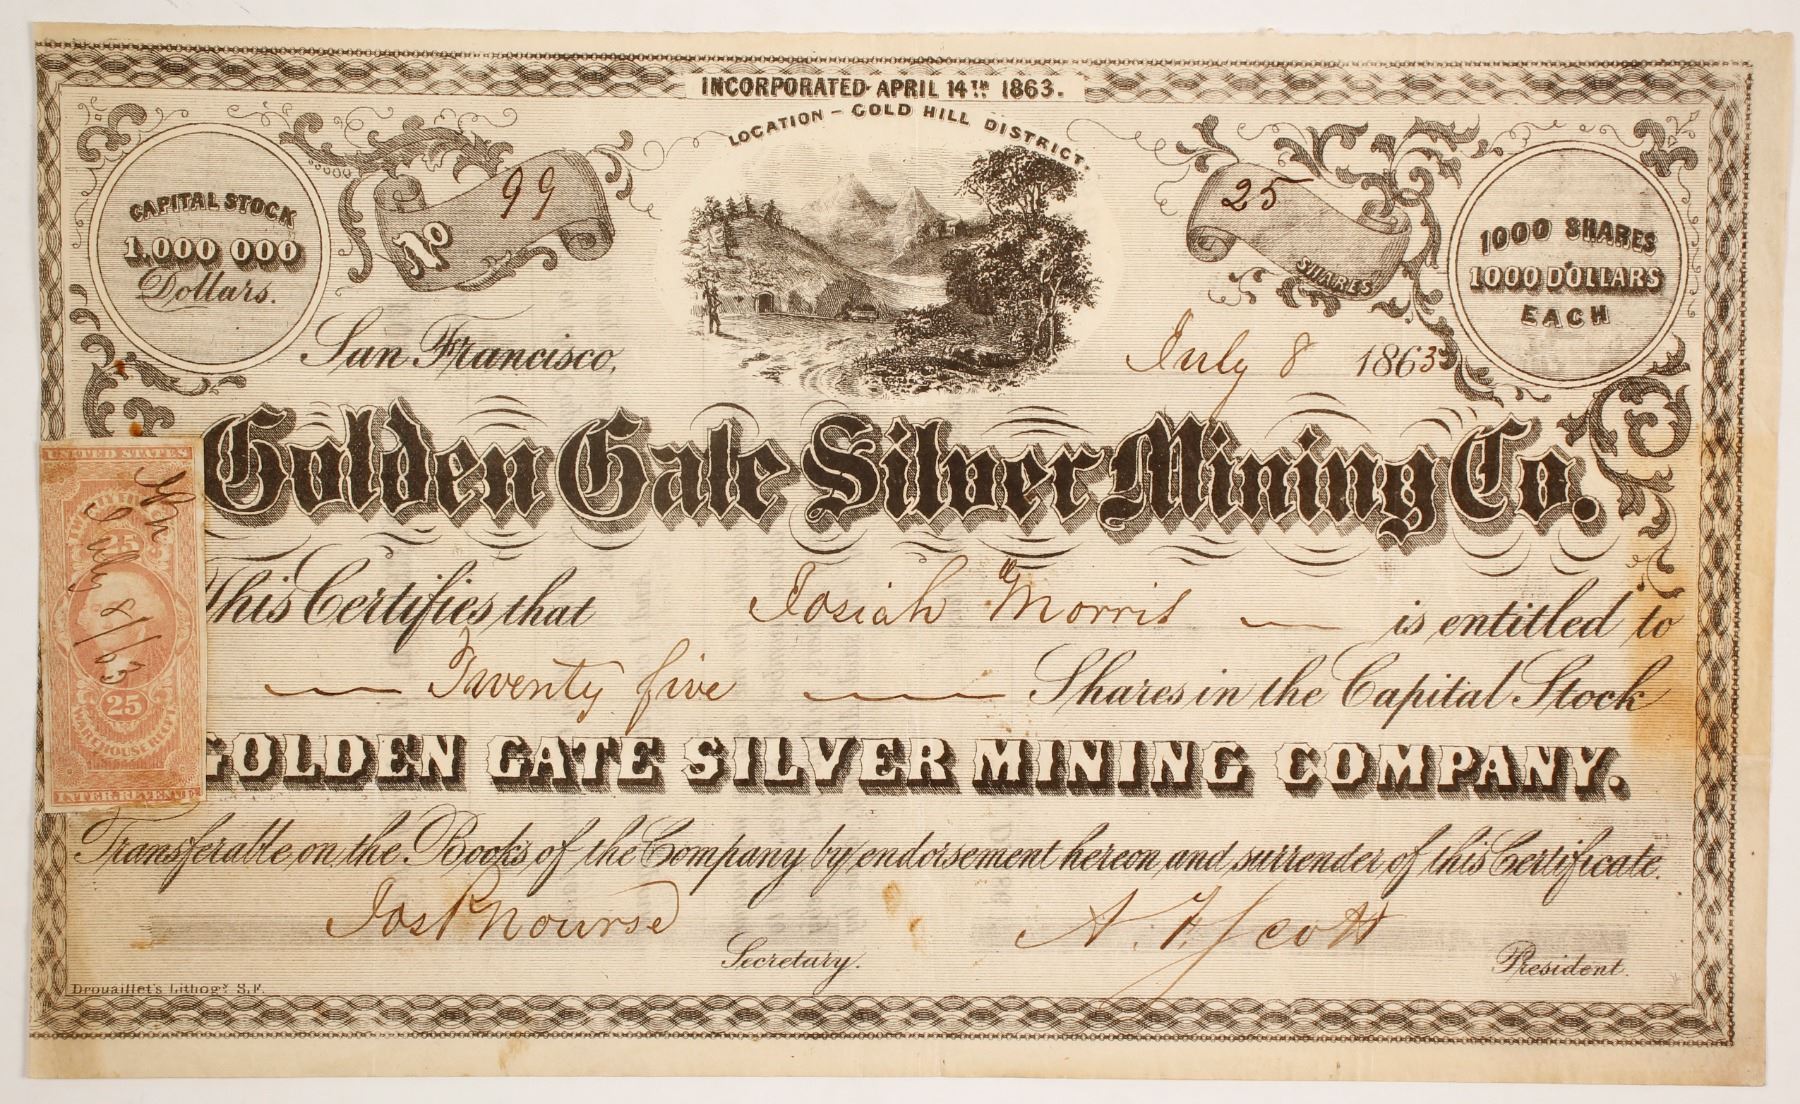 INCORPORATED APRIL 14TH 1863.
LOCATION – GOLD HILL DISTRICT.
CAPITAL STOCK
1.000 000
Dollars.
No 99
25 SHARES
1000 SHARES
1000 DOLLARS
EACH
San Francisco, July 8 1863
Golden Gate Silver Mining Co.
This Certifies that Josiah Morris is entitled to
Twenty five Shares in the Capital Stock
GOLDEN GATE SILVER MINING COMPANY.
Transferable on the Books of the Company by endorsement hereon and surrender of this Certificate.
Jos P Nourse
Secretary.
A. F. Scott
President.
Drouaillet's Lithogy. S.F.
UNITED STATES
25
July 8/63
25
WAREHOUSE RECPT.
INTER. REVENUE